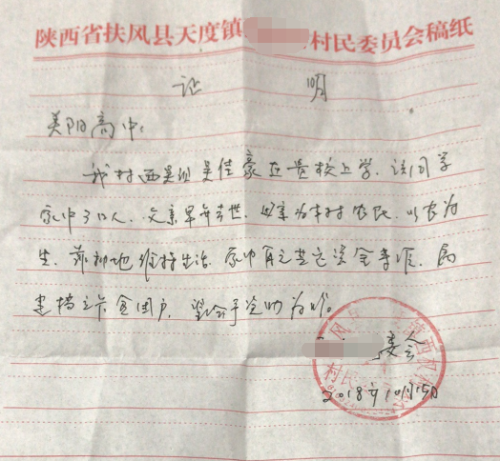 陕西省扶风县天度镇 村民委员会稿纸
证 明
美阳高中:
我村西吴坝吴佳豪在贵校上学,该同学
家中3口人,父亲早年去世,母亲为本村农民,以农为
生,靠种地维持生活,家中再无其它资金来源,属
建档立卡贫困户,望给予资助为盼。
委会
2018年10月15日